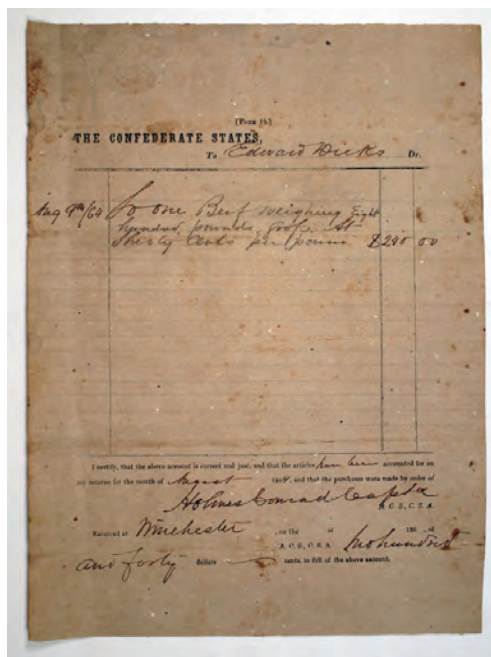 THE CONFEDERATE STATES,
To Edward Dicks Dr.
Aug 9th/64 To one Beef weighing Eight
hundred pounds, gross, At
Thirty Cents per pound $240 00
I certify, that the above account is correct and just, and that the articles have been accounted for on
my returns for the month of August 1864, and that the purchases were made by order of
Holmes Conrad
C. S., C. S. A.
Received at Winchester , on the of 186 , of
A. C. S., C. S. A. Two hundred
and forty dollars cents, in full of the above account.